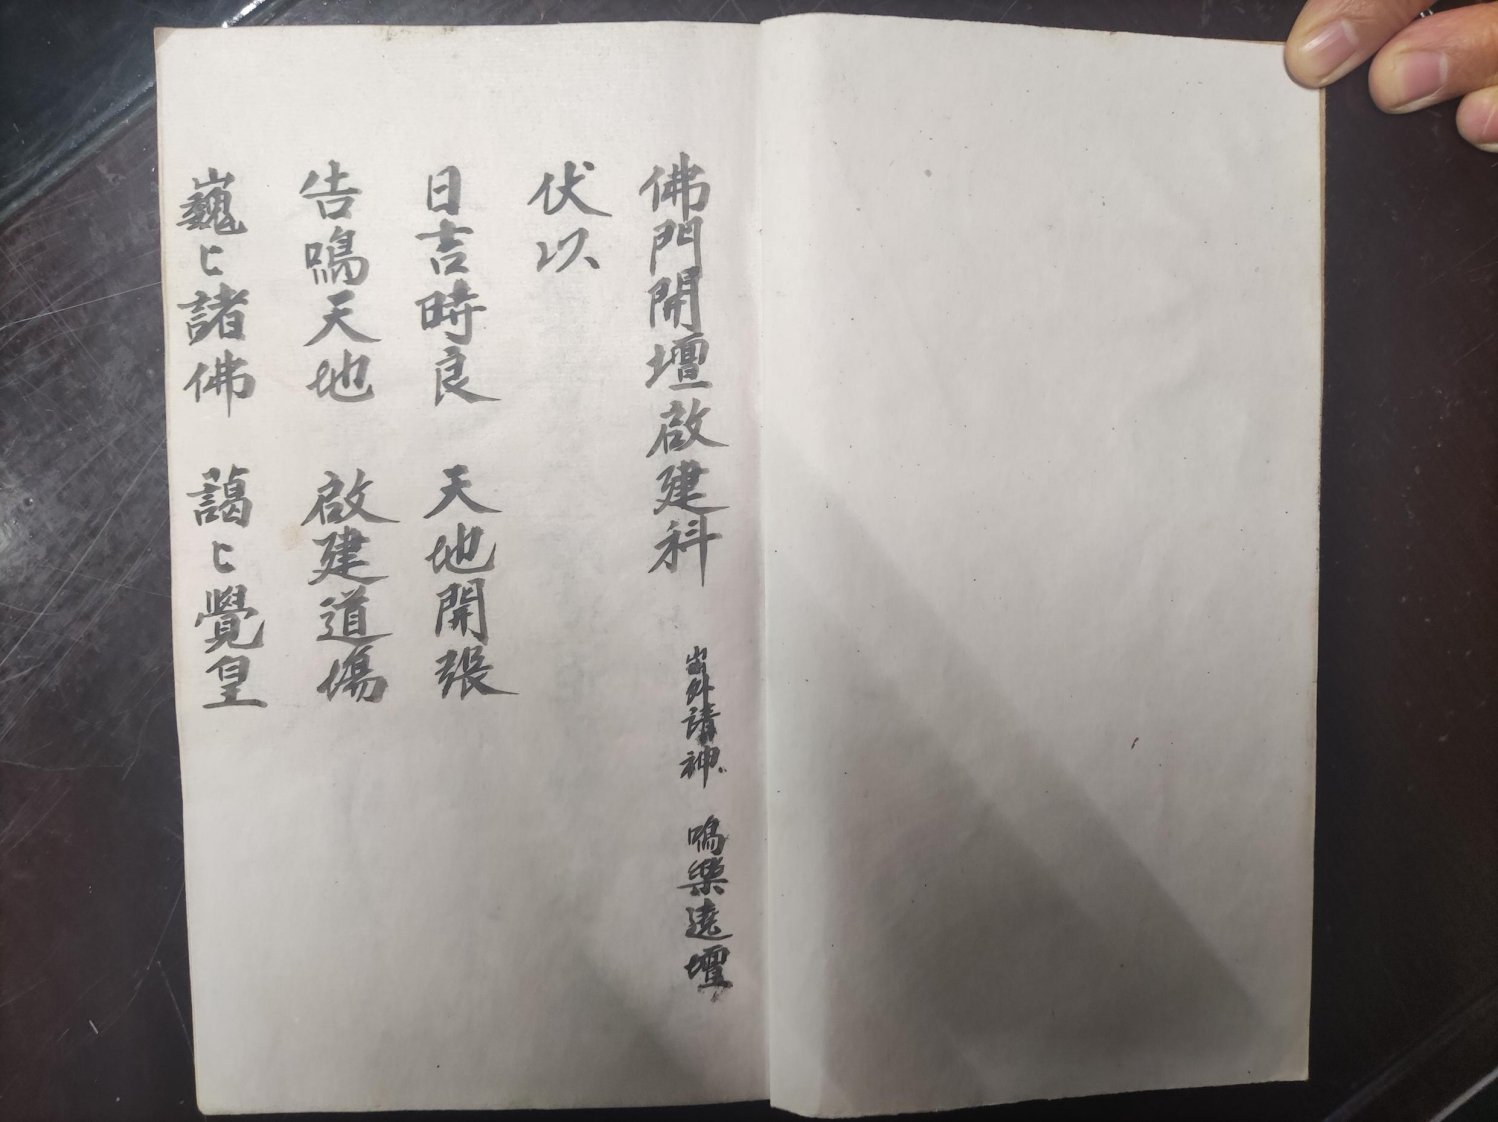 佛門開壇啟建科 出外請神 鳴樂遶壇
伏以
日吉時良 天地開張
告鳴天地 啟建道場
巍〻諸佛 藹〻覺皇